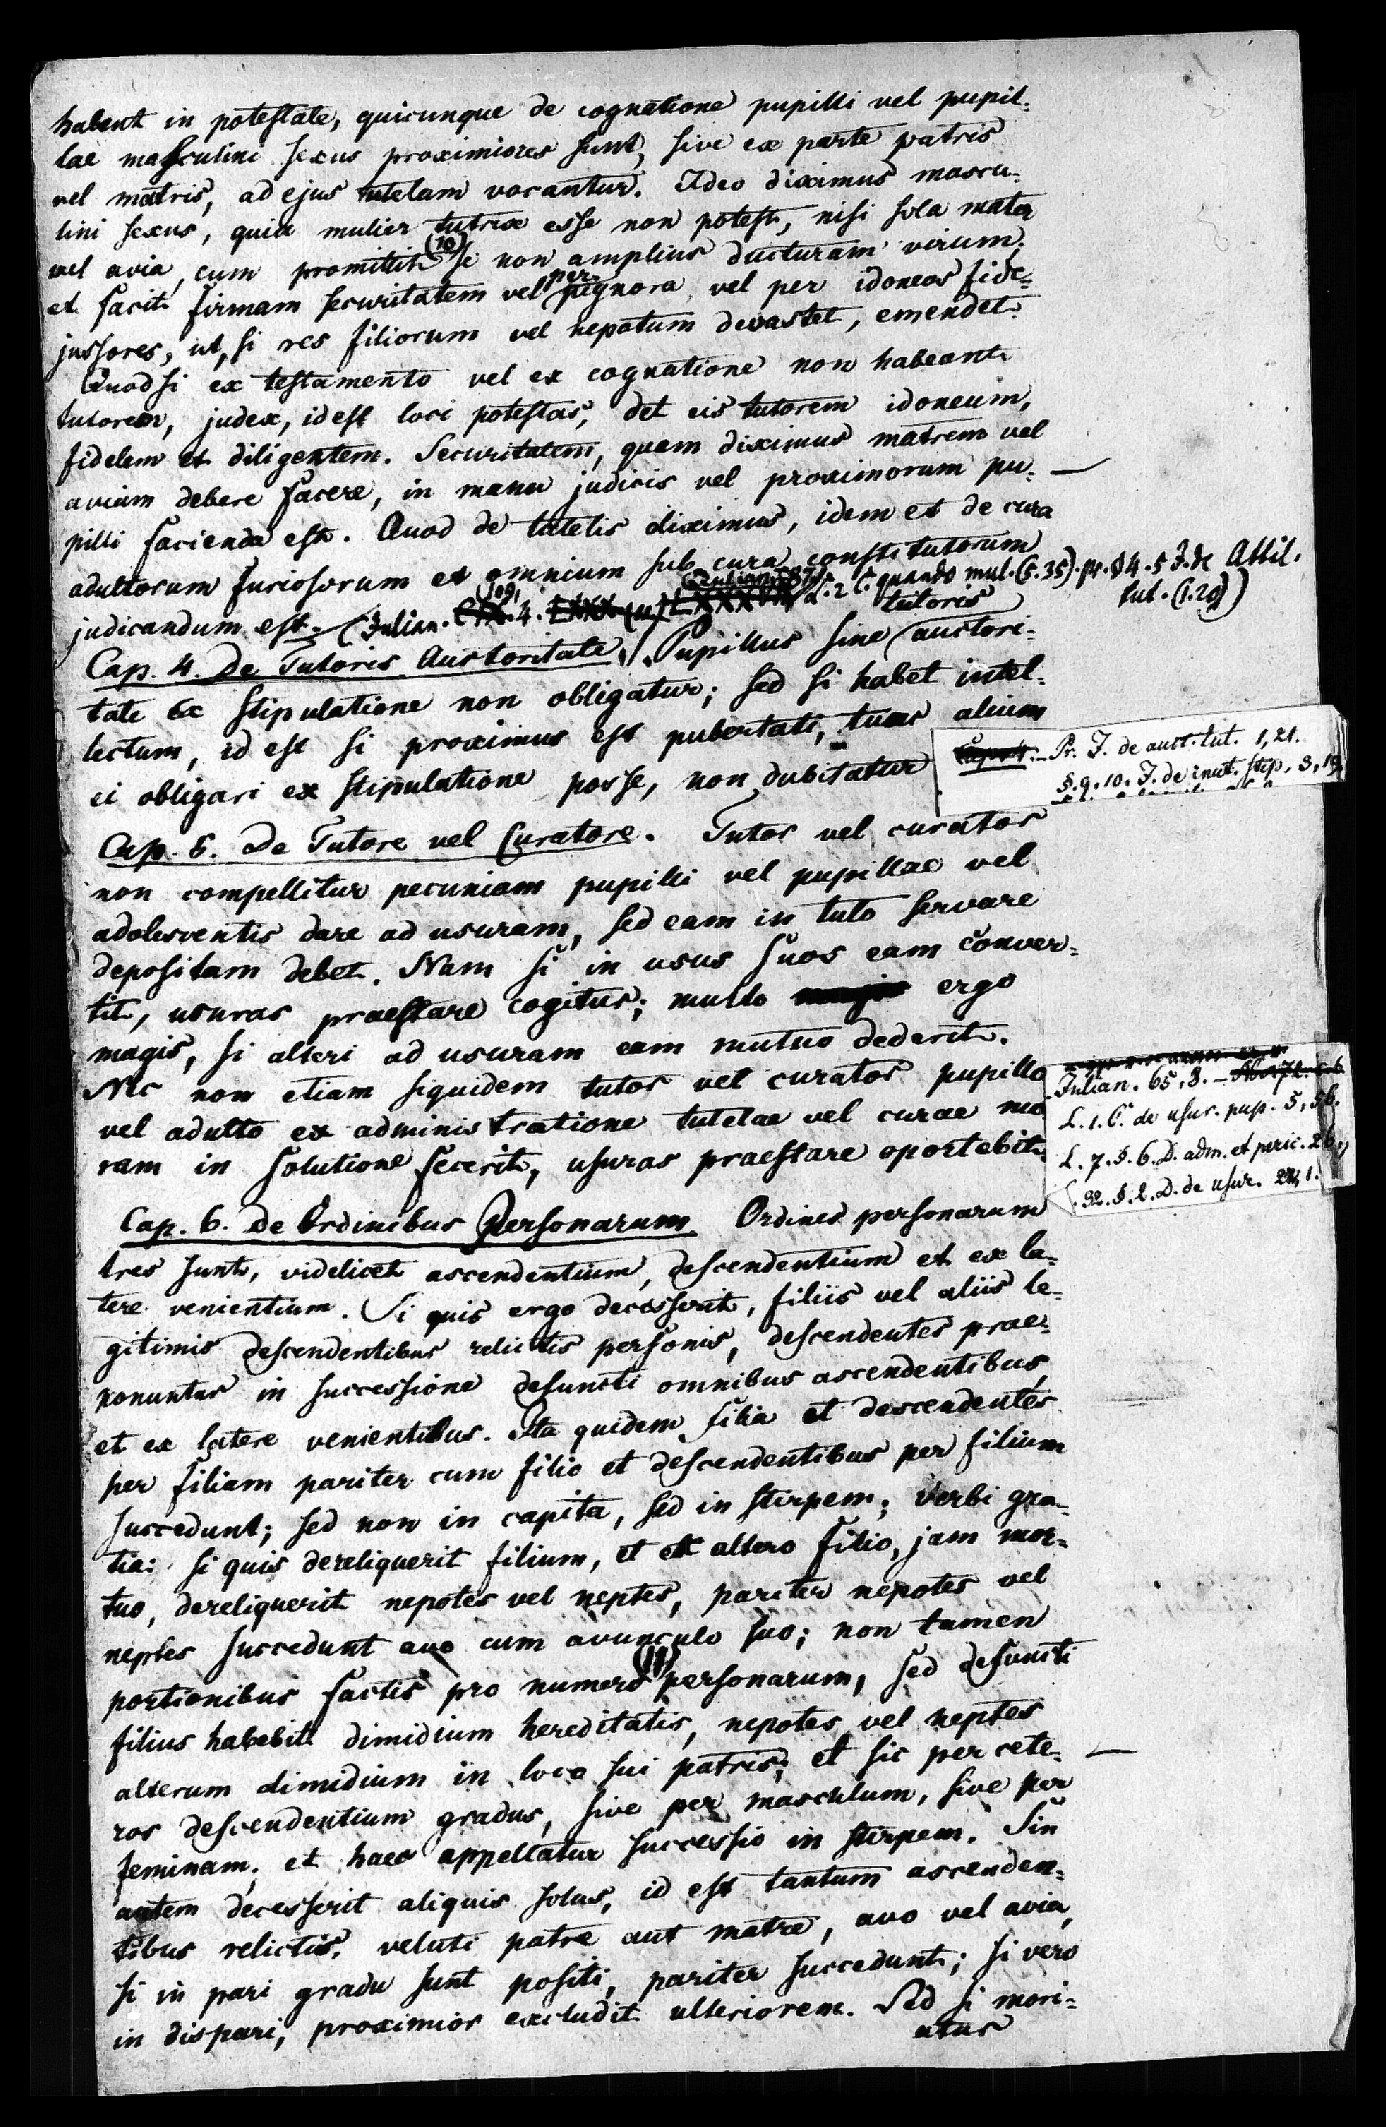 habent in potestate, quicunque de cognatione pupilli vel pupil-
lae masculini sexus proximiores sunt, sive ex parte patris
vel matris, ad ejus tutelam vocantur. Ideo diximus mascu-
lini sexus, quia mulier tutrix esse non potest, nisi sola mater
vel avia, cum promittit (10) se non amplius ducturam virum,
et facit firmam securitatem vel per pignora, vel per idoneos fide-
jussores, ut, si res filiorum vel nepotum devastet, emendet.
Quodsi ex testamento vel ex cognatione non habeant
tutorem, judex, id est loci potestas, det eis tutorem idoneum,
fidelem et diligentem. Securitatem, quam diximus matrem vel
aviam debere facere, in manu judicis vel proximorum pu-
pilli facienda est. Quod de tutelis diximus, idem et de cura
adultorum furiosorum et omnium sub cura constitutorum
judicandum est. (Julian. 109, 4. L. 2 C. quando mul. (5.35). pr. §4. 5 J. de Attil.
tut. (1.20))
Cap. 4. De Tutoris Auctoritate. Pupillus sine tutoris auctori-
tate ex stipulatione non obligatur; sed si habet intel-
lectum, id est si proximus est pubertati, tunc alium
ei obligari ex stipulatione posse, non dubitatur
Pr. J. de auct. tut. 1,21.
§. 9. 10. J. de inut. stip. 3, 19.
Cap. 5. De Tutore vel Curatore. Tutor vel curator
non compellitur pecuniam pupilli vel pupillae vel
adolescentis dare ad usuram, sed eam in tuto servare
depositam debet. Nam si in usus suos eam conver-
tit, usuras praestare cogitur; multo ergo
magis, si alteri ad usuram eam mutuo dederit.
Nec non etiam siquidem tutor vel curator pupillo
vel adulto ex administratione tutelae vel curae mo
ram in solutione fecerit, usuras praestare oportebit.
Julian. 65, 3.
L. 1. C. de usur. pup. 5, 56.
L. 7. §. 6. D. adm. et peric. 26,
L. 32. §. 2. D. de usur. 22, 1.
Cap. 6. De Ordinibus Personarum. Ordines personarum
tres sunt, videlicet ascendentium, descendentium et ex la-
tere venientium. Si quis ergo decesserit, filiis vel aliis le-
gitimis descendentibus relictis personis, descendentes prae-
ponuntur in successione defuncti omnibus ascendentibus,
et ex latere venientibus. Ita quidem filia et descendentes
per filiam pariter cum filio et descendentibus per filium
succedunt; sed non in capita, sed in stirpem; verbi gra-
tia: si quis dereliquerit filium, et ex altero filio, jam mor-
tuo, dereliquerit nepotes vel neptes, pariter nepotes vel
neptes succedunt avo cum avunculo suo; non tamen
portionibus factis pro numero (11) personarum, sed defuncti
filius habebit dimidium hereditatis, nepotes vel neptes
alterum dimidium in loco sui patris; et sic per cete-
ros descendentium gradus, sive per masculum, sive per
feminam; et haec appellatur successio in stirpem. Sin
autem decesserit aliquis solus, id est tantum ascenden-
tibus relictis, veluti patre aut matre, avo vel avia,
si in pari gradu sunt positi, pariter succedunt; si vero
in dispari, proximior excludit ulteriorem. Sed si mori-
atur